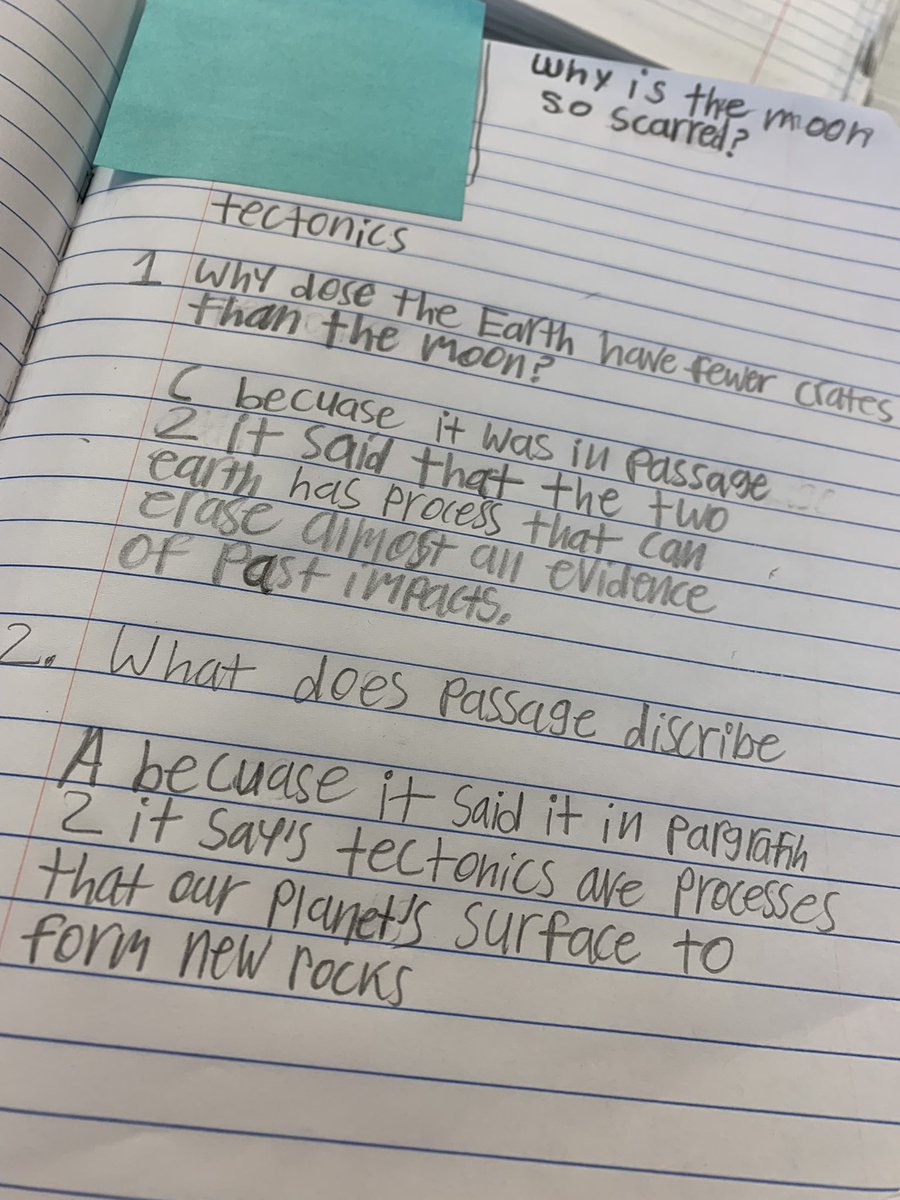 Why is the moon
so scarred?
tectonics
1 Why dose the Earth have fewer crates
than the moon?
C becuase it was in Passage
2 it said that the two
earth has process that can
erase almost all evidence
of Past impacts.
2. What does passage discribe
A becuase it said it in pargrafih
2 it say's tectonics are processes
that our planet's surface to
form new rocks